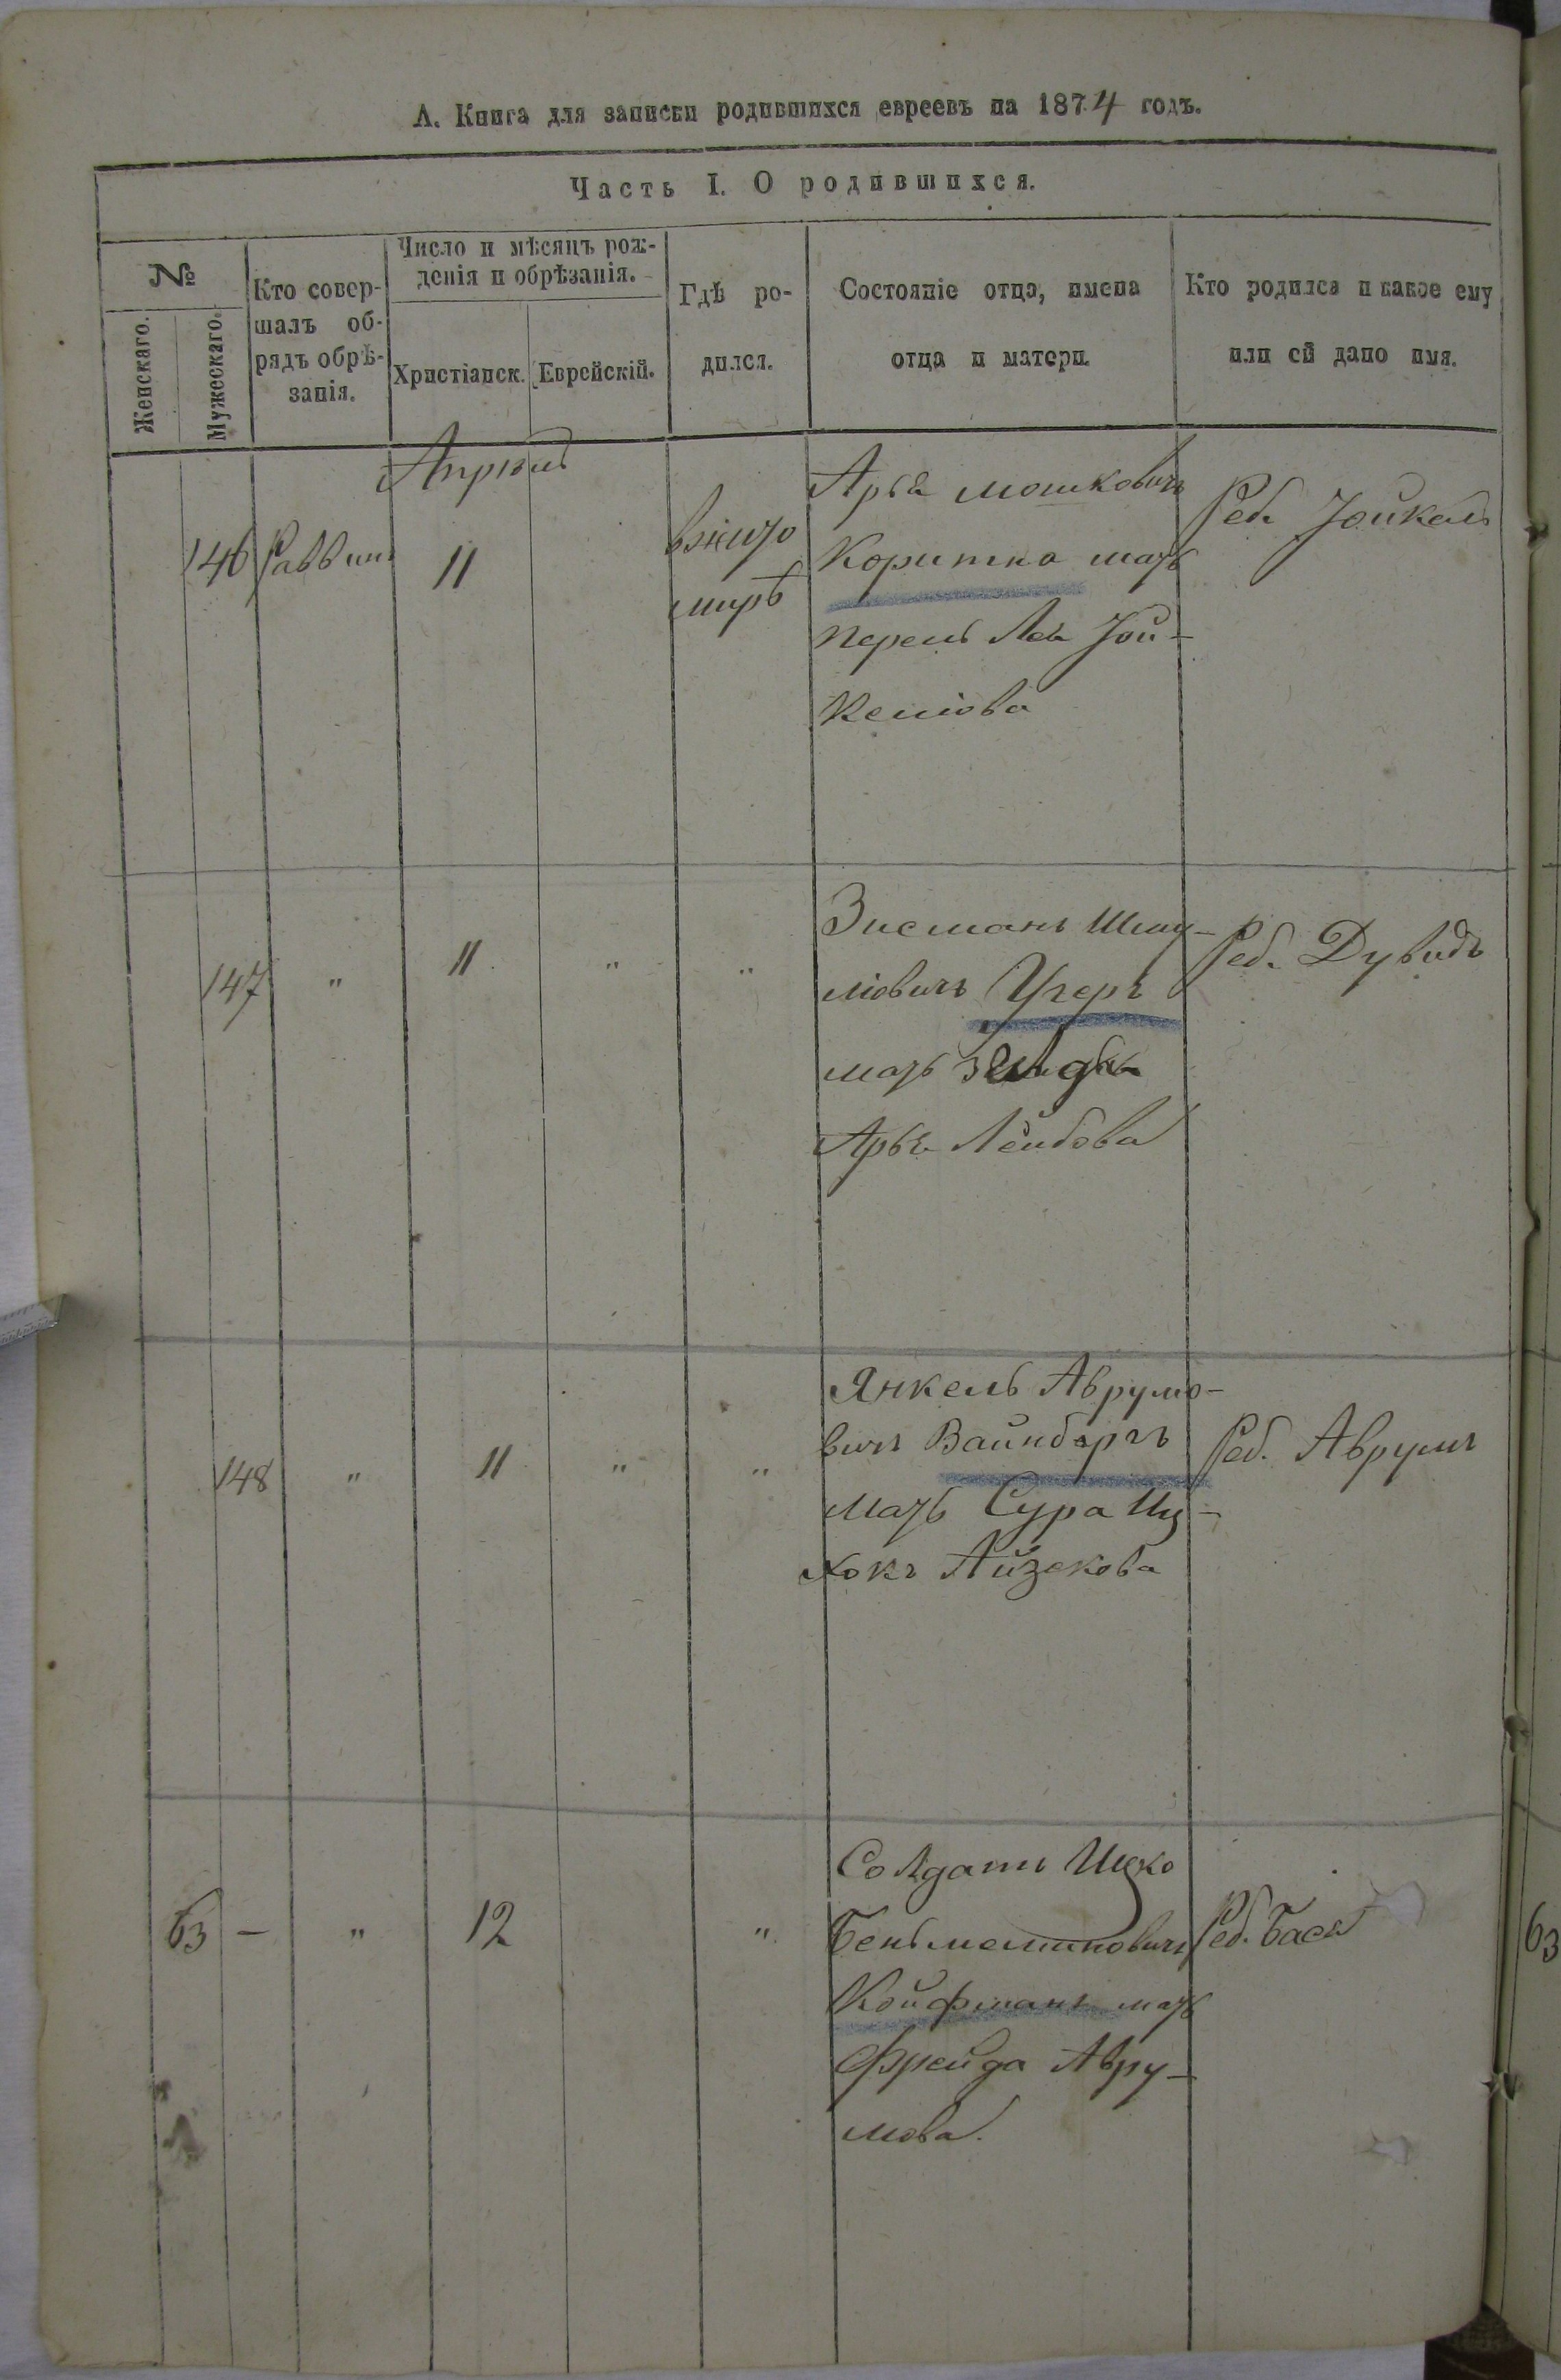 А. Книга для записки родившихся евреевъ на 1874 годъ.
Часть I. О родившихся.
№
Женскаго.
Мужескаго.
Кто совер-
шалъ об-
рядъ обрѣ-
занія.
Число и мѣсяцъ рож-
денія и обрѣзанія.
Христіанск.
Еврейскій.
Гдѣ ро-
дился.
Состояніе отца, имена
отца и матери.
Кто родился и какое ему
или ей дано имя.
Апрѣль
146
Раввинъ
11
вжито
мирѣ
Арья Мошковичъ
Коритно мать
Перель Лея Іой-
келіова
Реб. Іойкель
147
"
11
"
"
Зисманъ Шму-
ліовичъ Угеръ
мать Зельда
Арья Лейбова
Реб. Дувидъ
148
"
11
"
"
Янкель Аврумо-
вичъ Вайнбергъ
мать Сура Иц-
хокъ Айзекова
Реб. Аврумъ
63
—
"
12
"
Солдатъ Ицко
Беньменновичъ
Койфманъ мать
Фрейда Авру-
мова.
Реб. Бася
63